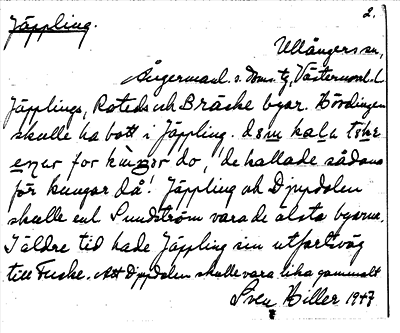 Jäppling.
2.
Ullångers sn,
Ångermanl. s. doms. tg, Västernorrl. l.
Jäpplings, Roteds och Bräcke byar. Hövdingen
skulle ha bott i Jäppling.
for do, de kallade sådana
för kungar då! Jäppling och Djupdalen
skulle enl Sundström vara de älsta byarna.
I äldre tid hade Jäppling sin utfartsväg
till Fuske. Att Djupdalen skulle vara lika gammalt
Sven Hiller 1947